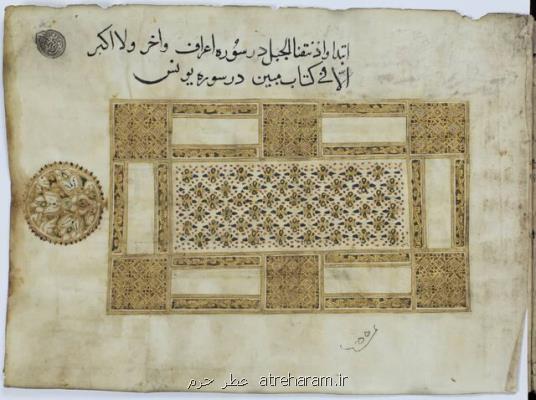 ابتدا واذ نتقنا الجبل در سوره اعراف و آخر ولا اكبر
الا فی کتاب مبین در سوره یونس
عطر حرم atreharam.ir